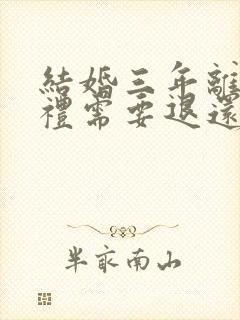 結婚三年離
禮需要退還
半畝南山